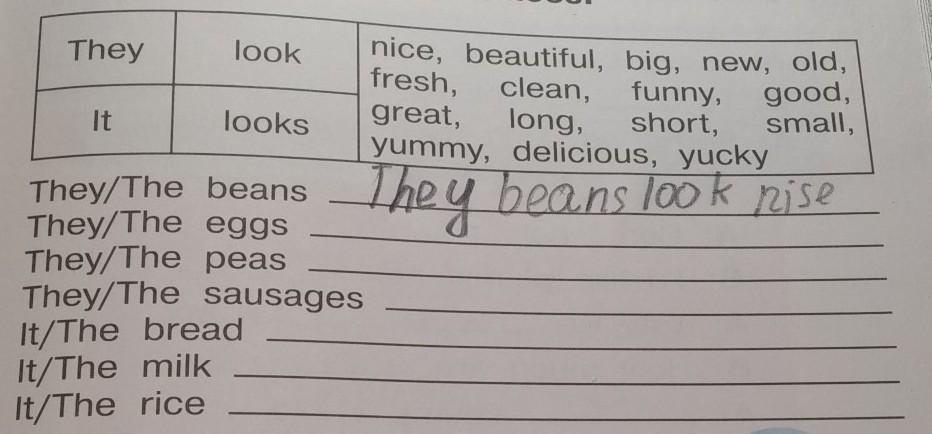 They look nice, beautiful, big, new, old,
fresh, clean, funny, good,
It looks great, long, short, small,
yummy, delicious, yucky
They/The beans They beans look nise
They/The eggs
They/The peas
They/The sausages
It/The bread
It/The milk
It/The rice